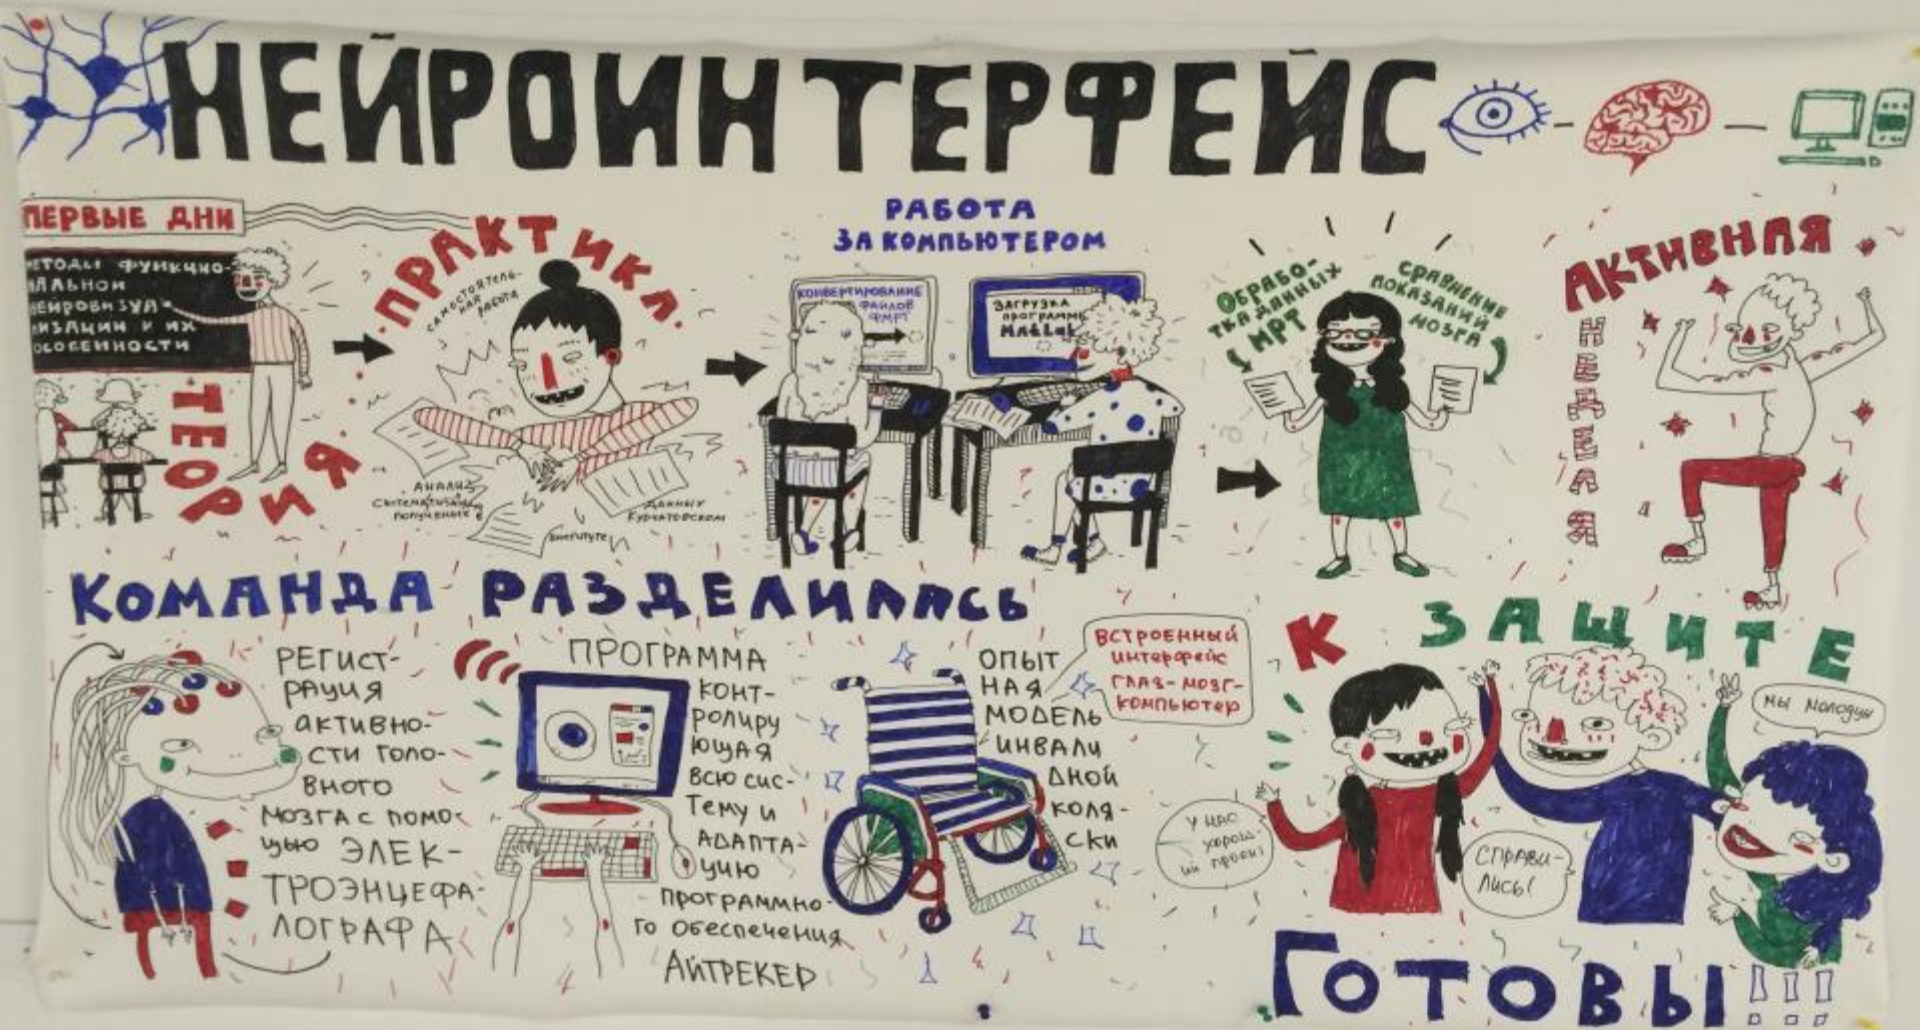 НЕЙРОИНТЕРФЕЙС
ПЕРВЫЕ ДНИ
МЕТОДЫ ФУНКЦИО-
НАЛЬНОЙ
НЕЙРОВИЗУА-
ЛИЗАЦИИ И ИХ
ОСОБЕННОСТИ
ТЕОРИЯ
ПРАКТИКА
САМОСТОЯТЕЛЬ-
НАЯ
РАБОТА
АНАЛИЗ
ПОЛУЧЕННЫХ
ДАННЫХ
КУРЧАТОВСКОМ
ИНСТИТУТЕ
РАБОТА
ЗА КОМПЬЮТЕРОМ
КОНВЕРТИРОВАНИЕ
ФАЙЛОВ
ФМРТ
ЗАГРУЗКА
ПРОГРАММЫ
MatLab
ОБРАБО-
ТКА ДАННЫХ
МРТ
СРАВНЕНИЕ
ПОКАЗАНИЙ
МОЗГА
АКТИВНАЯ
НЕДЕЛЯ
КОМАНДА РАЗДЕЛИЛАСЬ
РЕГИСТ-
РАЦИЯ
АКТИВНО-
СТИ ГОЛО-
ВНОГО
МОЗГА С ПОМО-
ЩЬЮ ЭЛЕК-
ТРОЭНЦЕФА-
ЛОГРАФА
ПРОГРАММА
КОНТ-
РОЛИРУ
ЮЩАЯ
ВСЮ СИС-
ТЕМУ И
АДАПТА-
ЦИЮ
ПРОГРАММНО-
ГО ОБЕСПЕЧЕНИЯ
АЙТРЕКЕР
ОПЫТ
НАЯ
МОДЕЛЬ
ИНВАЛИ
ДНОЙ
КОЛЯ-
СКИ
ВСТРОЕННЫЙ
ИНТЕРФЕЙС
ГЛАЗ-МОЗГ-
КОМПЬЮТЕР
К ЗАЩИТЕ
МЫ МОЛОДЦЫ
У НАС
ХОРОШ-
ИЙ ПРОЕКТ
СПРАВИ-
ЛИСЬ!
ГОТОВЫ!!!